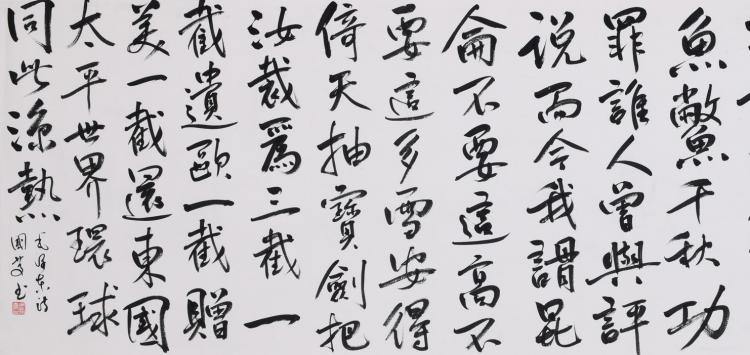 魚鱉千秋功
罪誰人曾與評
说而今我謂昆
侖不要這高不
要這多雪安得
倚天抽寶劍把
汝裁爲三截一
截遺歐一截贈
美一截還東國
太平世界環球
同此涼熱
毛澤東詩
國 书